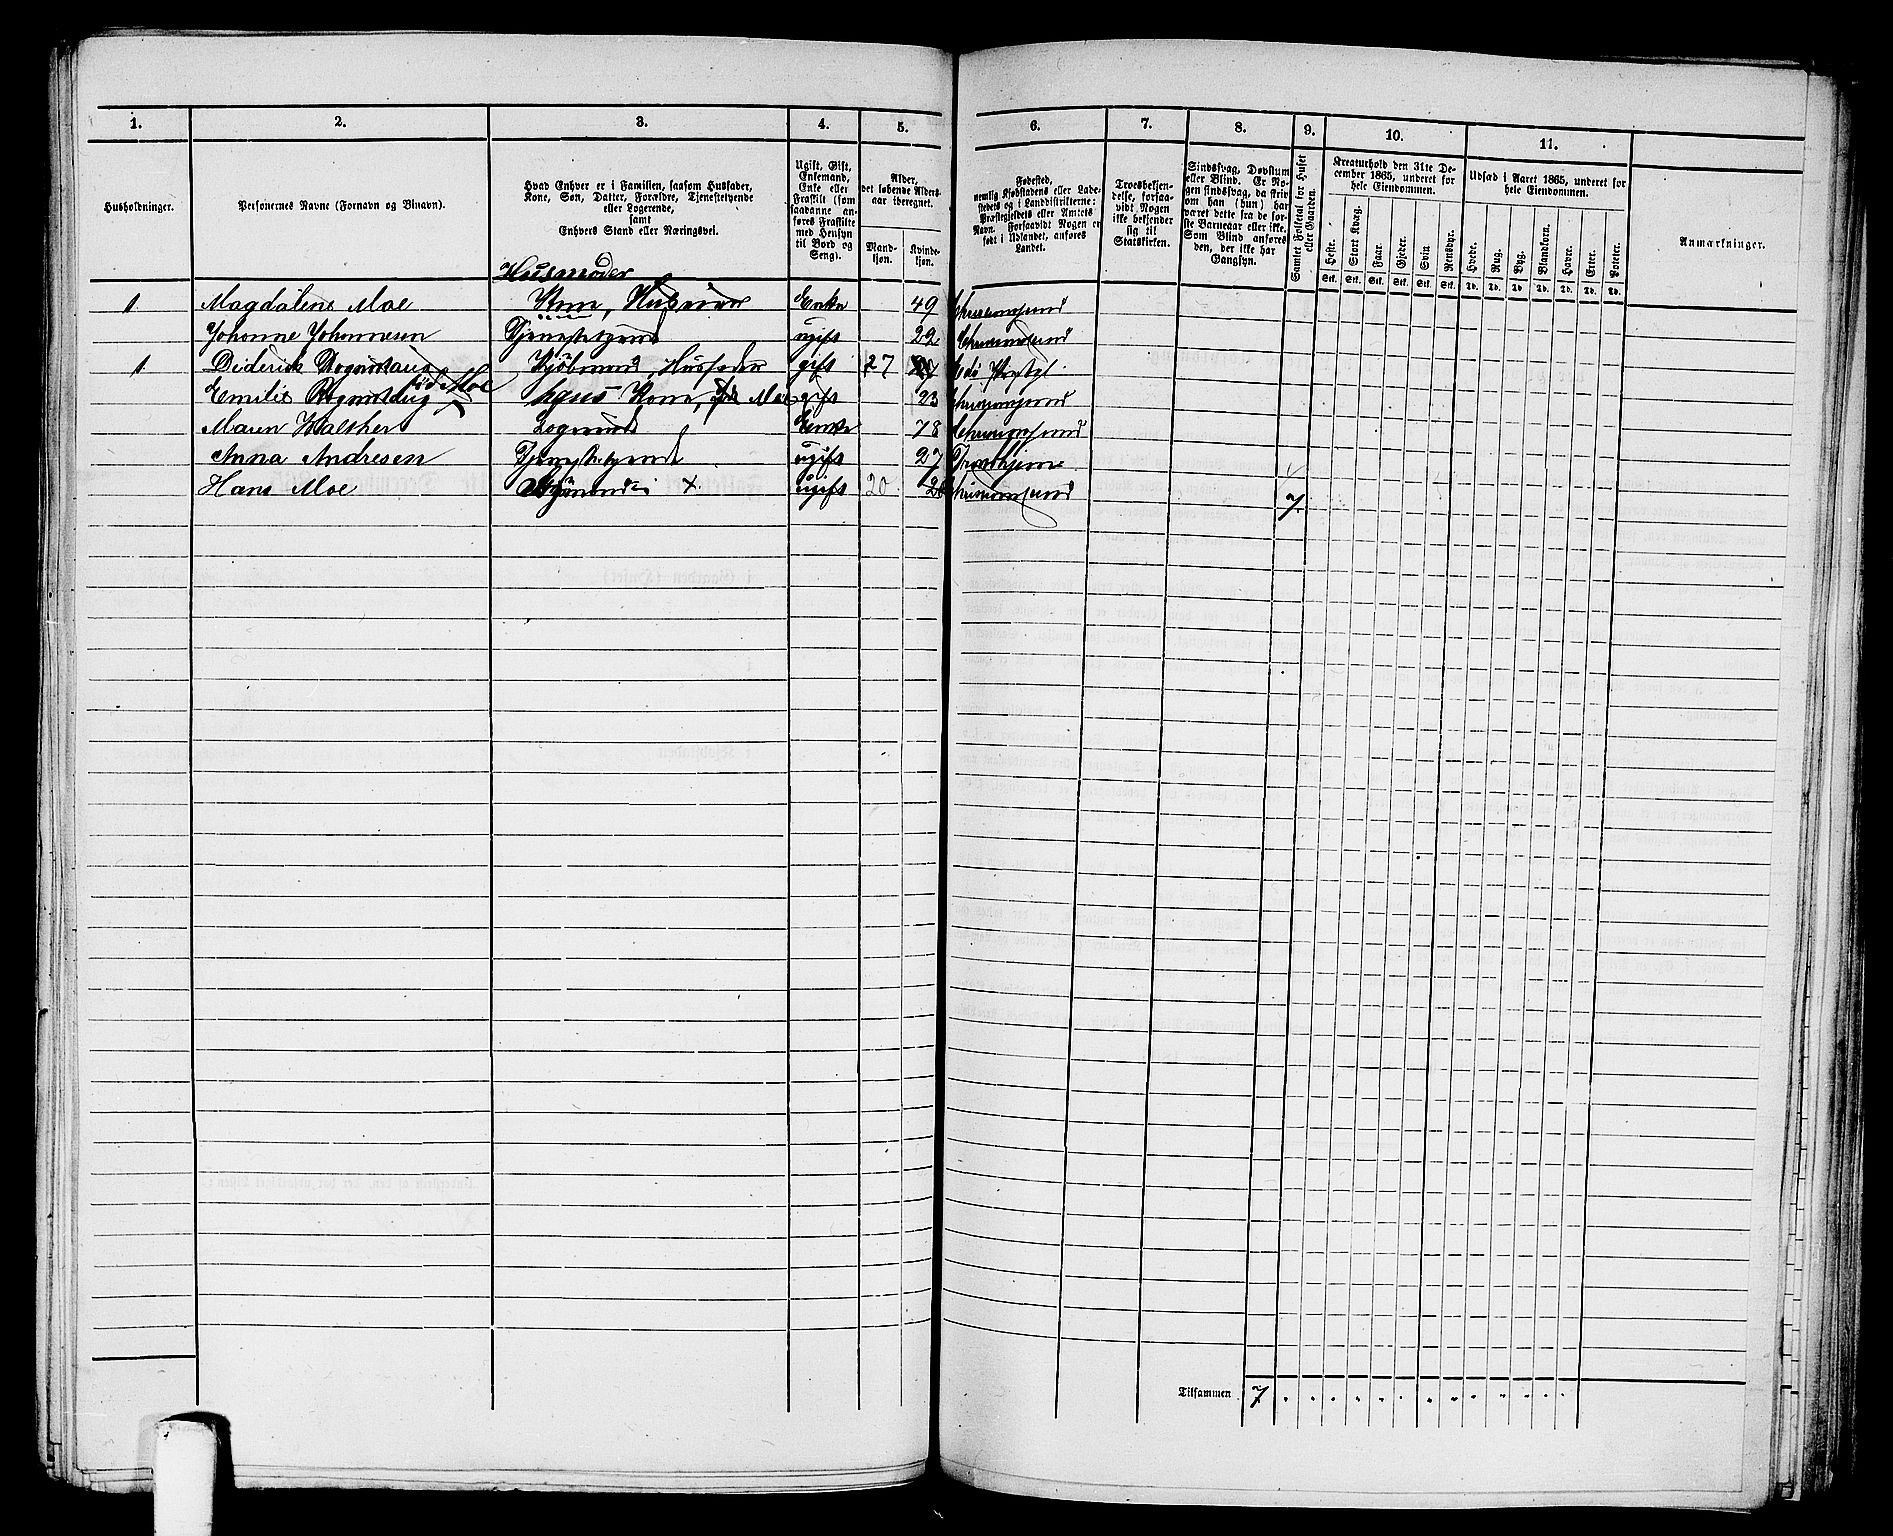 1. 2. 3. 4. 5. 6. 7. 8. 9. 10. 11.
Husholdninger.
Personernes Navne (Fornavn og Binavn).
Hvad Enhver er i Familien, saasom Husfader,
Kone, Søn, Datter, Forældre, Tjenestetyende
eller Logerende,
samt
Enhvers Stand eller Næringsvei.
Ugift, Gift,
Enkemand,
Enke eller
Fraskilt (som
saadanne an-
føres Fraskilte
med Hensyn
til Bord og
Seng).
Alder,
det løbende Alders-
aar iberegnet.
Mand-
kjøn.
Kvinde-
kjøn.
Fødested,
nemlig Kjøbstadens eller Lade-
stedets og i Landdistrikterne:
Præstegjeldets eller Amtets
Navn. Forsaavidt Nogen er
født i Udlandet, anføres
Landet.
Troesbekjen-
delse, forsaa-
vidt Nogen
ikke bekjender
sig til
Statskirken.
Sindssvag, Døvstum
eller Blind. Er No-
gen sindssvag, da skriv
om han (hun) har
været dette fra de før-
ste Barneaar eller ikke.
Som Blind anføres
den, der ikke har
Gangsyn.
Samlet Folketal for Huset
eller Gaarden.
Kreaturhold den 31te De-
cember 1865, underet for
hele Eiendommen.
Heste. Stort Kvæg. Faar. Gjeder. Svin Rensdyr.
Stk. Stk. Stk. Stk. Stk. Stk.
Udsæd i Aaret 1865, underet for
hele Eiendommen.
Hvede. Rug. Byg. Blandkorn. Havre. Erter. Poteter.
Td. Td. Td. Td. Td. Td. Td.
Anmærkninger.
Husmoder
1 Magdalene Moe Kone, Enke 49 Christiansund
Johanne Johannesen Tjenestetyende ugift 22 Christiansund
1 Diderik Kjøbmand, Husfader gift 27 Edø Præstgl.
Emilie født Moe hans Kone, født Moe gift 23 Christiansund
Maren Walsher Logerende Enke 78 Christiansund
Anna Andresen Tjenestetyende ugift 27 Trondhjem
Hans Moe × ugift 20 Christiansund 7
Tilsammen 7